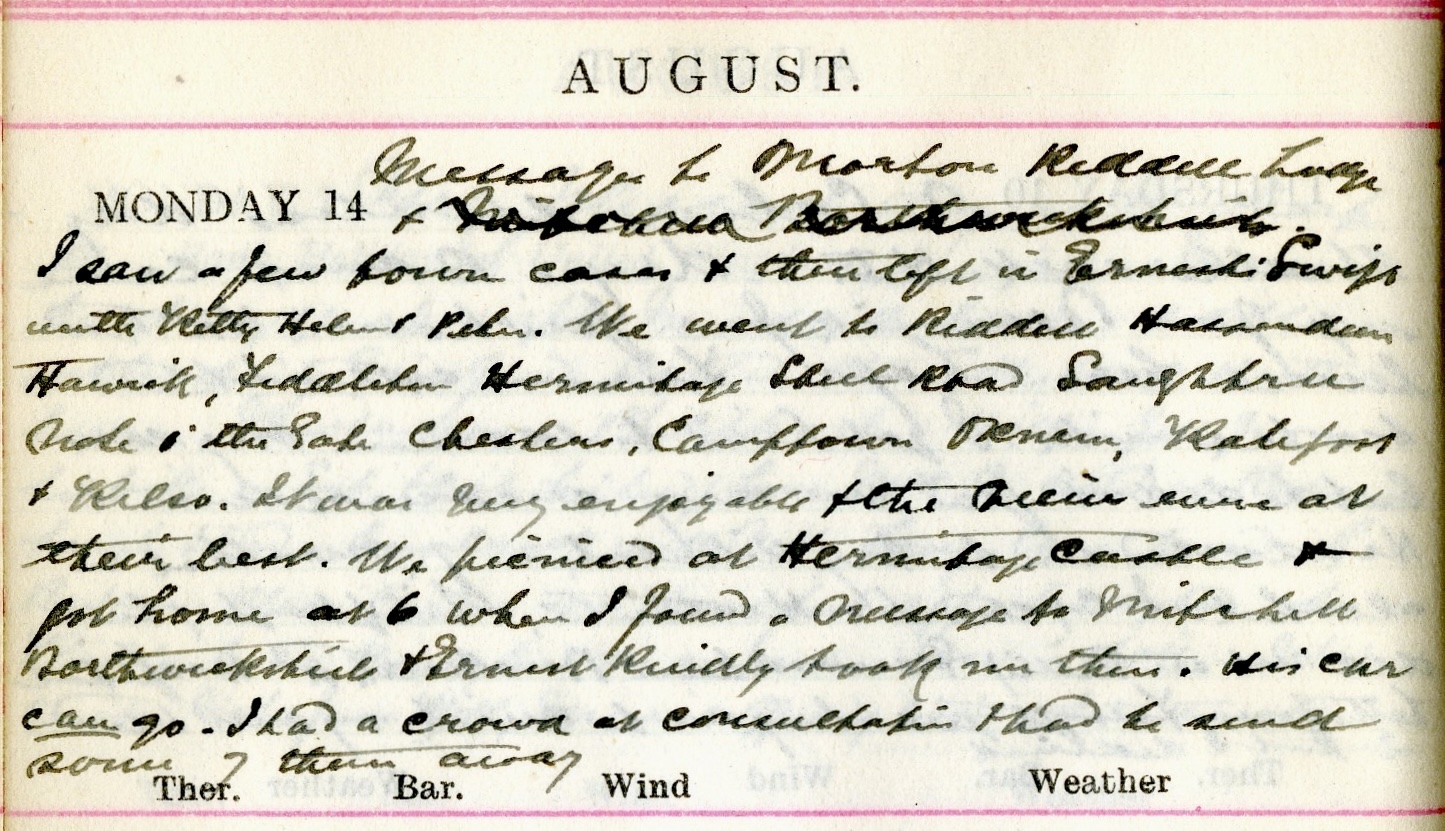 AUGUST.
Message to Morton Riddell Lodge
MONDAY 14 & Mitchell Borthwickshiels.
I saw a few town cases & then left in Ernest's Swift
with Ketty Helen & Peter. We went to Riddell Hassendean
Hawick, Fiddleton Hermitage Steel Road Saughtree
Note o' the Gate Chesters, Camptown Oxnam, Kalefoot
& Kelso. It was very enjoyable & the were at
their best. We picniced at Hermitage Castle &
got home at 6 when I found a message to Mitchell
Borthwickshiels & Ernest kindly took me there. His car
can go. I had a crowd at consultation & had to send
some of them away
Ther. Bar. Wind Weather